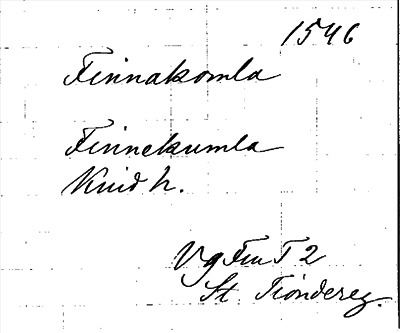 1546
Finnakomla
Finnekumla
Kind h.
Vg Fru T 2
St Tiondereg.